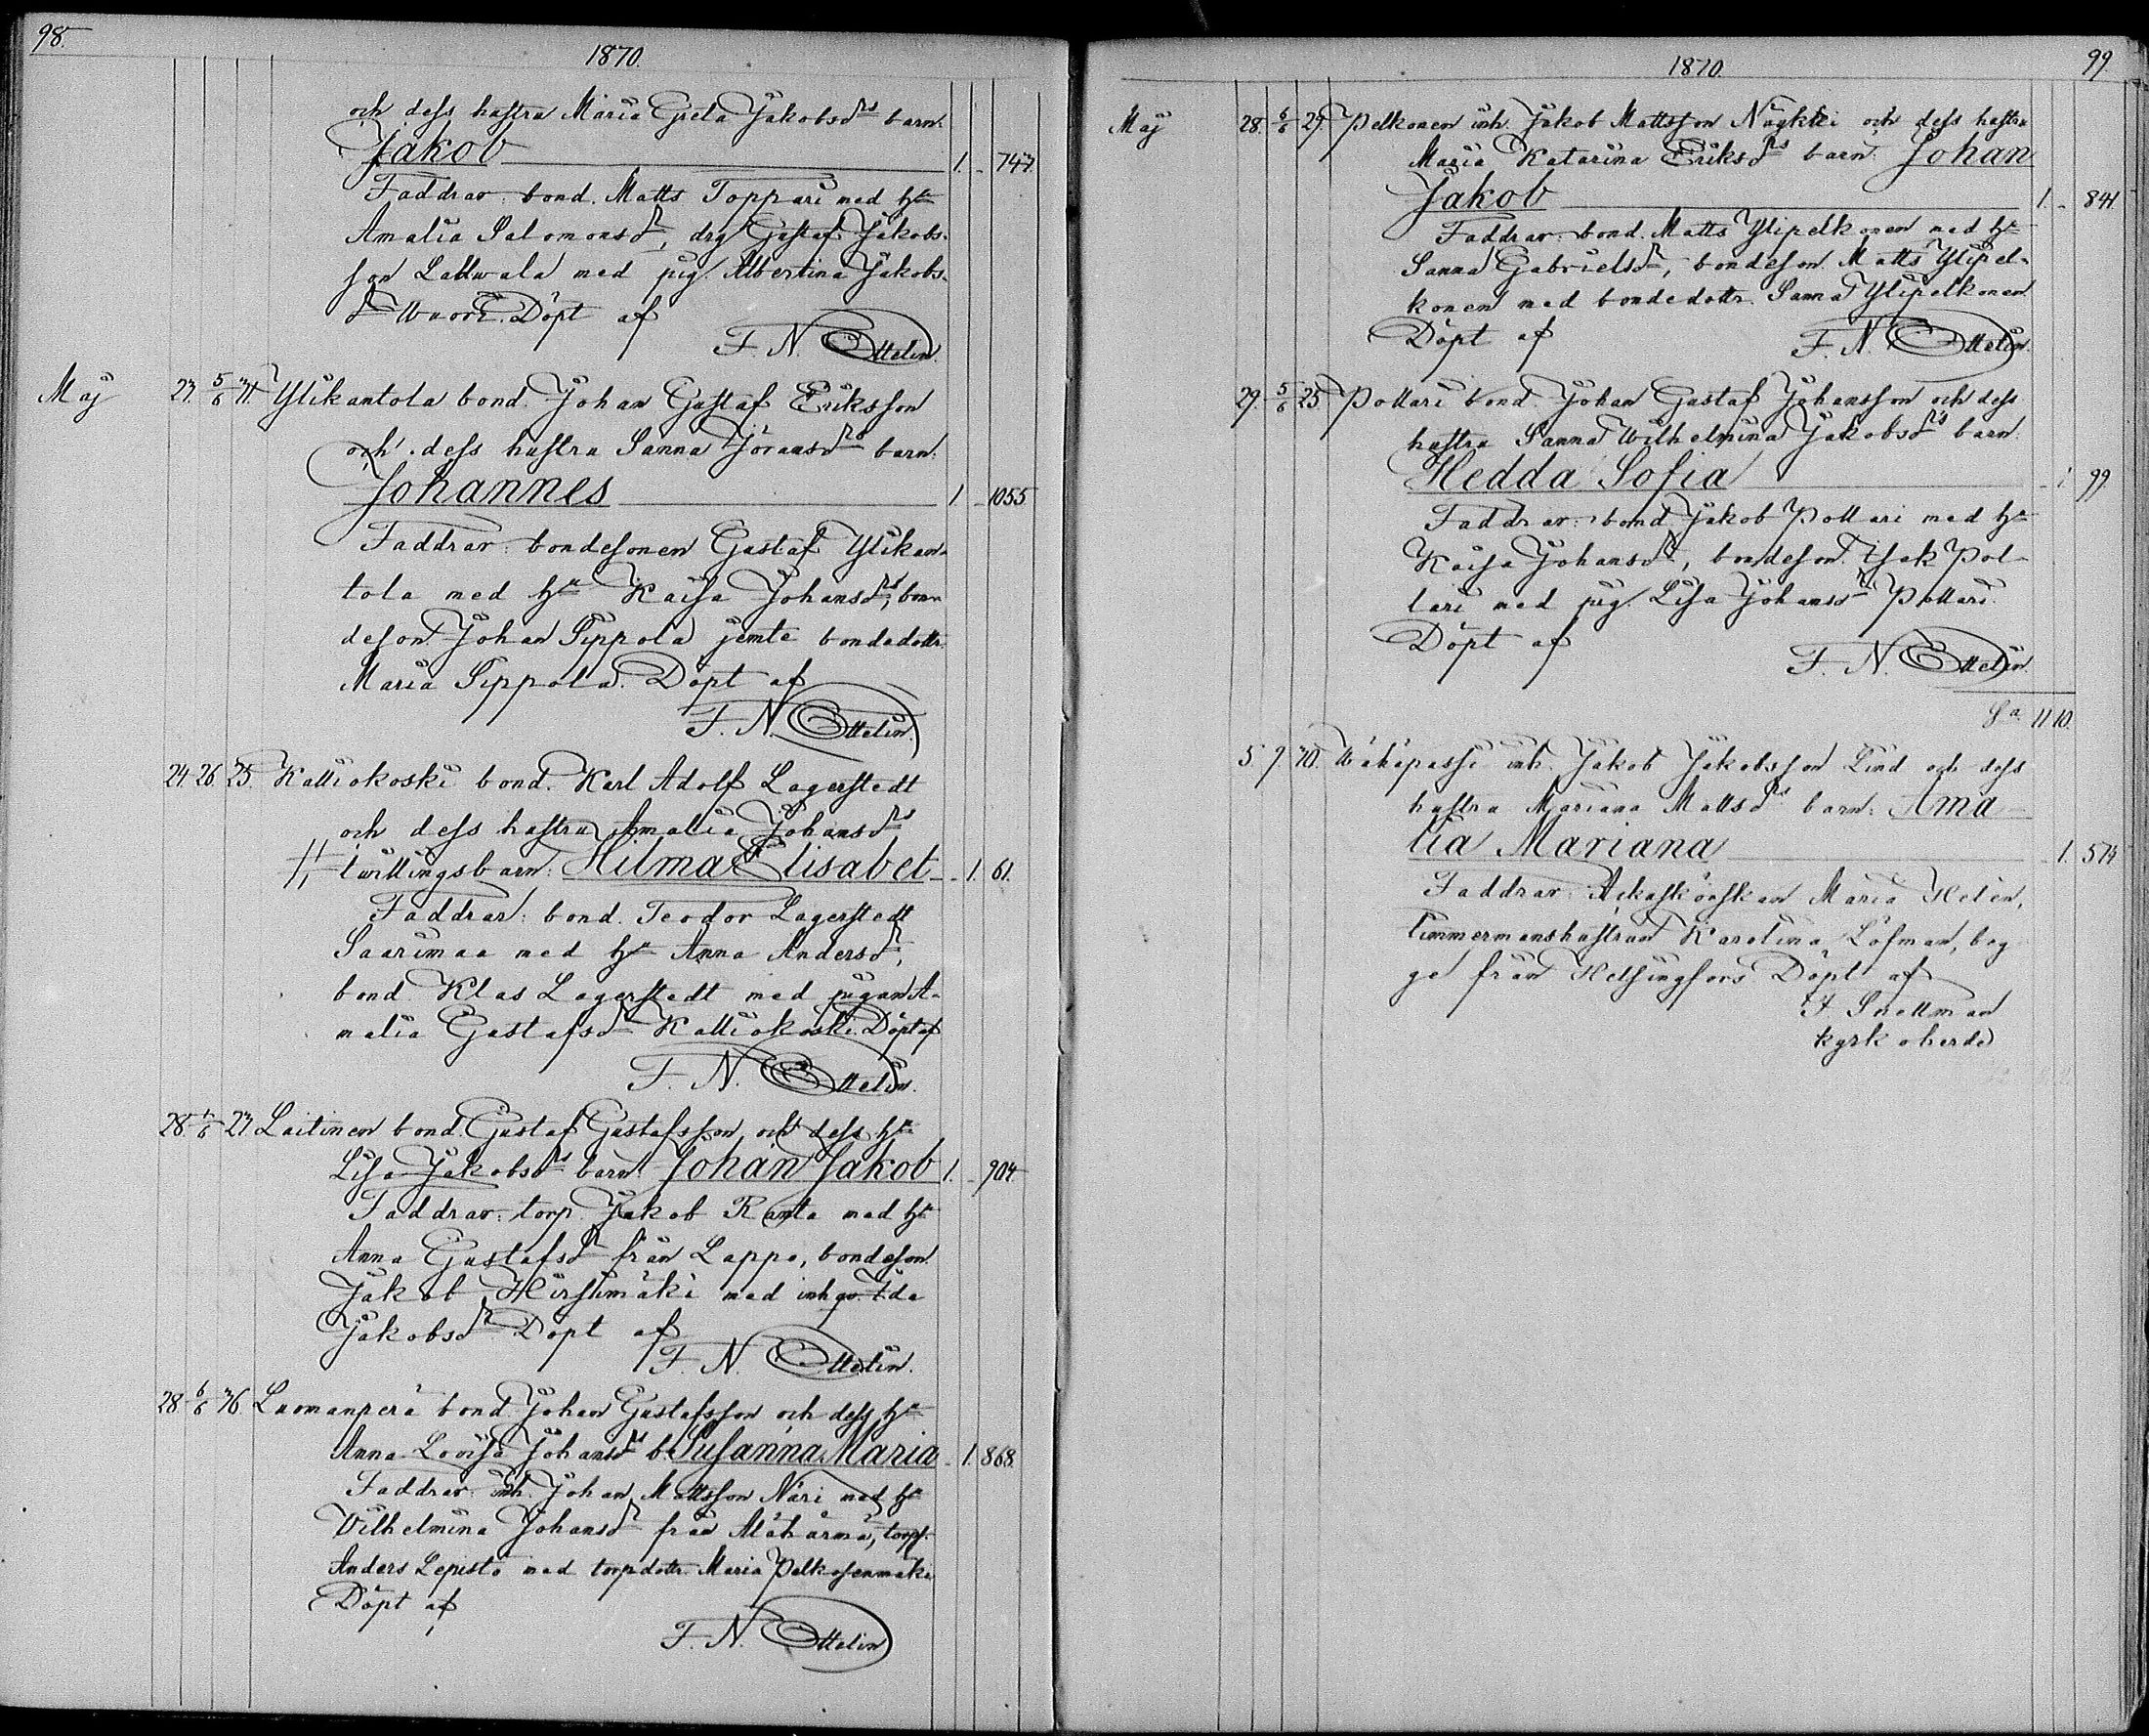 98.
1870.
och dess hustru Maria Greta Jakobsdrs barn:
Jakob 1. 747.
Faddrar: bond. Matts Toppari med h:u
Amalia Salomonsdr, drg Gustaf Jakobs-
son Lattwala med pig. Albertina Jakobs-
dr Wuori. Döpt af
F. N. Ottelin.
Maj 23. 5/6 31. Ylikantola bond. Johan Gustaf Eriksson
och dess hustru Sanna Göransdrs barn:
Johannes 1. 1055
Faddrar: bondesonen Gustaf Ylikan-
tola med h:u Kaisa Johansdr, bon-
deson Johan Sippola jemte bondedottr.
Maria Sippola. Döpt af
F. N. Ottelin.
24. 26. 25. Kalliokoski bond. Karl Adolf Lagerstedt
och dess hustru Amalia Johansdrs
tvillingsbarn: Hilma Elisabet 1. 61.
Faddrar: bond. Teodor Lagerstedt
Saarimaa med h:u Anna Andersdr,
bond. Klas Lagerstedt med pigan A-
malia Gustafsdr Kalliokoski. Döpt af
F. N. Ottelin.
28. 6 27. Laitinen bond. Gustaf Gustafsson och dess h:u
Lisa Jakobsdrs barn: Johan Jakob 1. 904
Faddrar: torp. Jakob Ranta med h:u
Anna Gustafsdr från Lappo, bondeson
Jakob Hirsimäki med inhqv. Ida
Jakobsdr Döpt af
F. N. Ottelin.
28. 6/6 36. Luomanperä bond. Johan Gustafsson och dess h:u
Anna Lovisa Johansdrs b. Susanna Maria 1. 868.
Faddrar: inh. Johan Mattsson Näri med h:u
Wilhelmina Johansdr från Alahärmä, torps.
Anders Lepistö med torpdottr. Maria Pelkosenmäki
Döpt af
F. N. Ottelin
1870. 99
Maj 28. 6/6 29. Pelkonen inh. Jakob Mattsson Näykki och dess hustru
Maria Katarina Eriksdrs barn: Johan
Jakob 1. 841.
Faddrar: bond. Matts Ylipelkonen med h:u
Sanna Gabrielsdr, bondeson Matts Ylipel-
konen med bondedottr. Sanna Ylipelkonen
Döpt af
F. N. Ottelin.
29. 5/6 25. Pottari bond. Johan Gustaf Johansson och dess
hustru Sanna Wilhelmina Jakobsdrs barn:
Hedda Sofia 1 99.
Faddrar: bond. Jakob Pottari med h:u
Kaisa Johansdr, bondeson Isak Pot-
tari med pig. Lisa Johansdr Pottari.
Döpt af
F. N. Ottelin.
S:a 11 10.
5. 7. 30. Wähäpassi inh. Jakob Jakobsson Lind och dess
hustru Mariana Mattsdrs barn: Ama-
lia Mariana 1. 574
Faddrar: Maria Helén,
timmermanshustrun Karolina Löfman, beg-
ge från Helsingfors Döpt af
Snellman
kyrkoherde